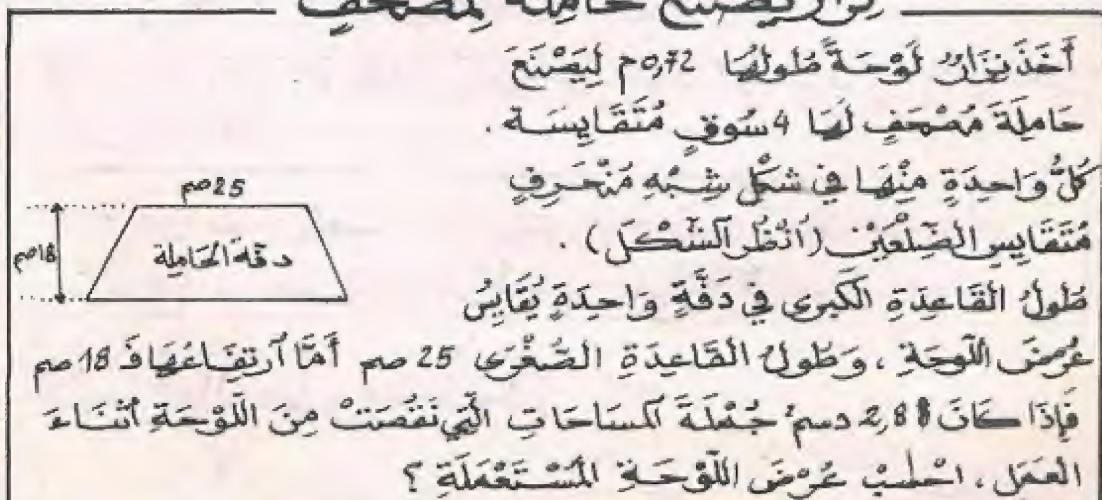 نزار يصنع حاملة لمصحف
أَخَذَ نِزَارُ لَوْحَةً طُولُهَا 0,72م لِيَصْنَعَ
حَامِلَةَ مُصْحَفٍ لَهَا 4 سُوقٍ مُتَقَايِسَة.
كُلُّ وَاحِدَةٍ مِنْهَا فِي شَكْلِ شِبْهِ مُنْحَرِفٍ
مُتَقَايِسِ الضِّلْعَيْنِ (اُنْظُرِ الشَّكْلَ).
طُولُ القَاعِدَةِ الكُبرى فِي دَفَّةٍ وَاحِدَةٍ يُقَايِسُ
عُرْضَ اللَّوْحَةِ، وَطُولُ القَاعِدَةِ الصُّغْرَى 25 صم أَمَّا اَرْتِفَاعُهَا فَـ 18 صم
فَإِذَا كَانَ 2,88 دسم² جُمْلَةَ المسَاحَاتِ الَّتِي نَقُصَتْ مِنَ اللَّوْحَةِ أَثْنَاءَ
العَمَلِ، احْسُبْ عُرْضَ اللَّوْحَةِ المُسْتَعْمَلَةِ؟
25صم
18صم
دفة الحاملة